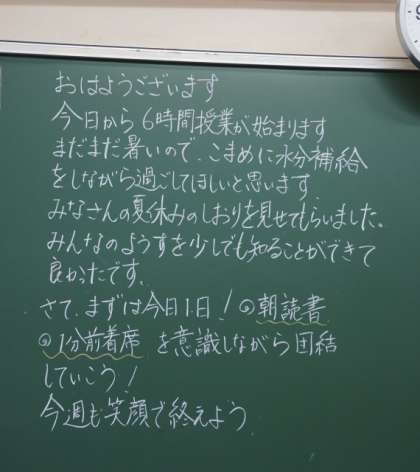 おはようございます
今日から6時間授業が始まります
まだまだ暑いので、こまめに水分補給
をしながら過ごしてほしいと思います
みなさんの夏休みのしおりを見せてもらいました。
みんなのようすを少しでも知ることができて
良かったです。
さて、まずは今日1日！◎朝読書
◎1分前着席 を意識しながら団結
していこう！
今週も笑顔で終えよう